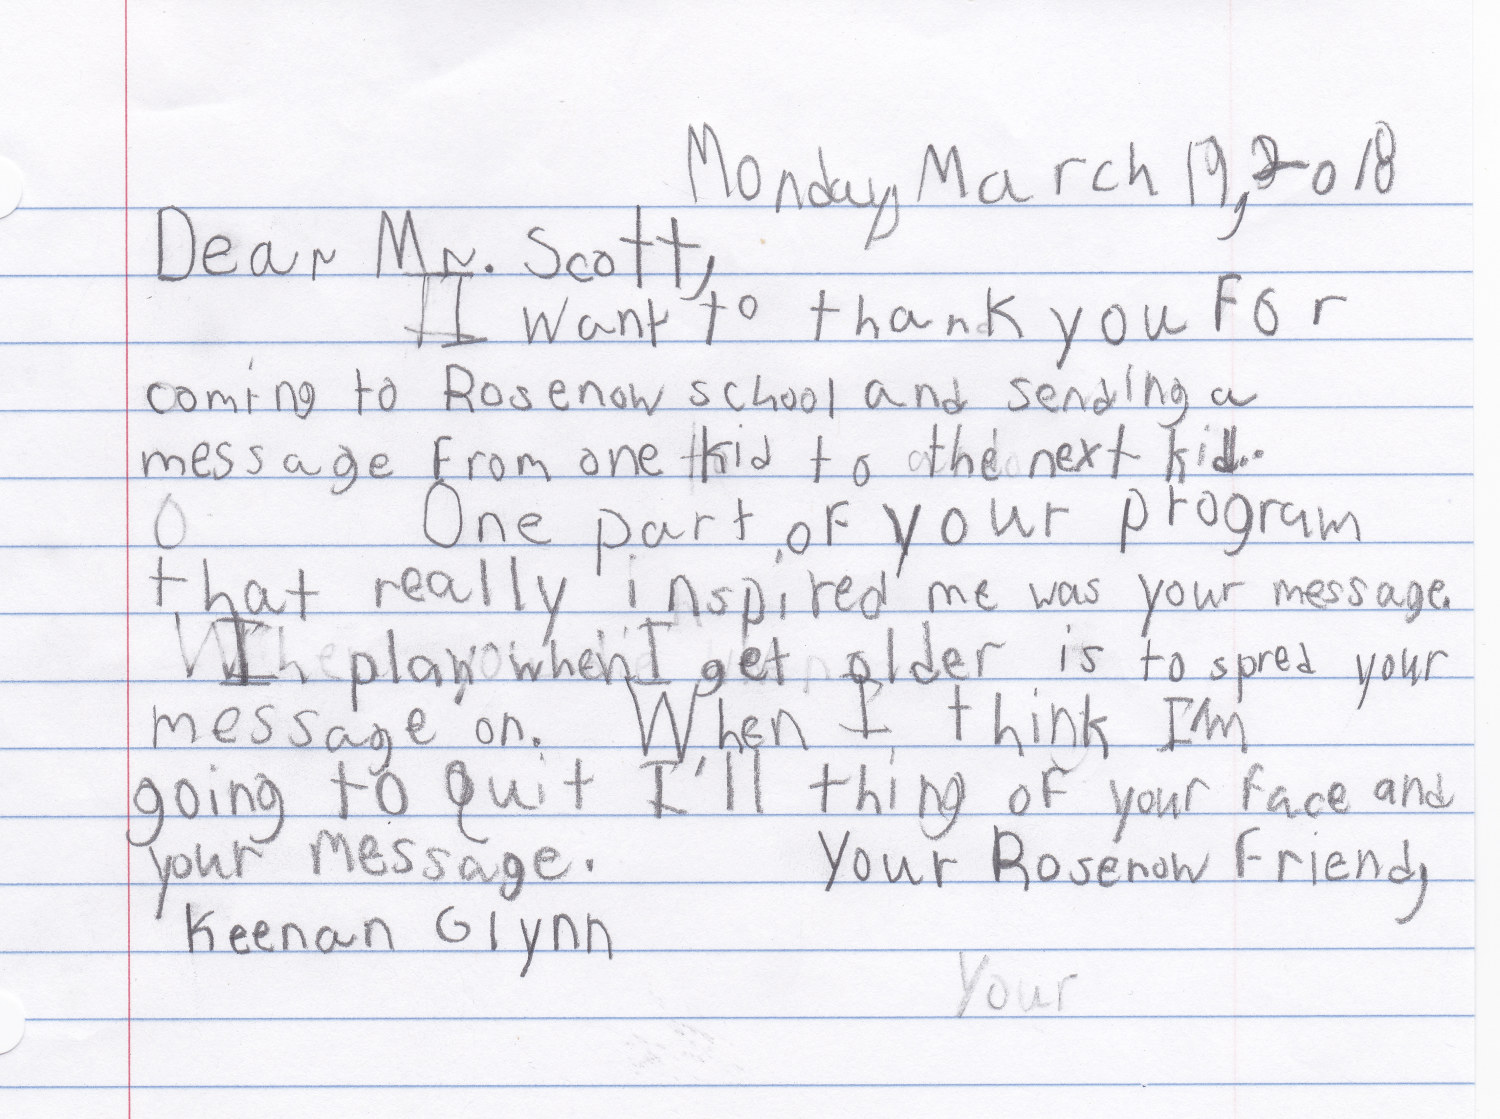 Monday, March 19, 2018
Dear Mr. Scott,
I want to thank you For
coming to Rosenow school and sending a
message From one kid to the next kid.
O One part of your program
that really inspired me was your message.
I plan when I get older is to spred your
message on. When I think I'm
going to quit I'll thing of your face and
your message. Your Rosenow Friend,
Keenan Glynn
Your